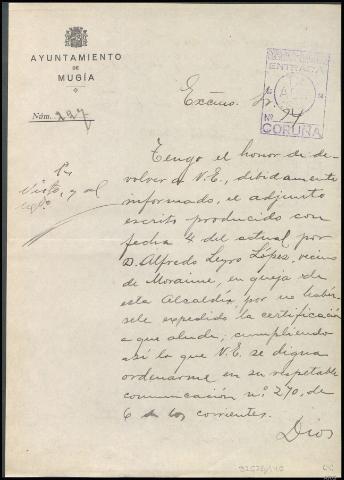 AYUNTAMIENTO
DE
MUGÍA
Núm. 227
ENTRADA
Nº 94
CORUÑA
Excmo. Sr.
Visto, y al
Tengo el honor de de-
volver a V.E., debidamente
informado, el adjunto
escrito producido con
fecha 4 del actual por
D. Alfredo Leyro López, vecino
de Moraime, en queja de
esta Alcaldía por no habér-
sele expedido la certificación
a que alude; cumpliendo
así lo que V.E. se digna
ordenarme en su respetable
comunicación nº 270, de
6 de los corrientes.
Dios